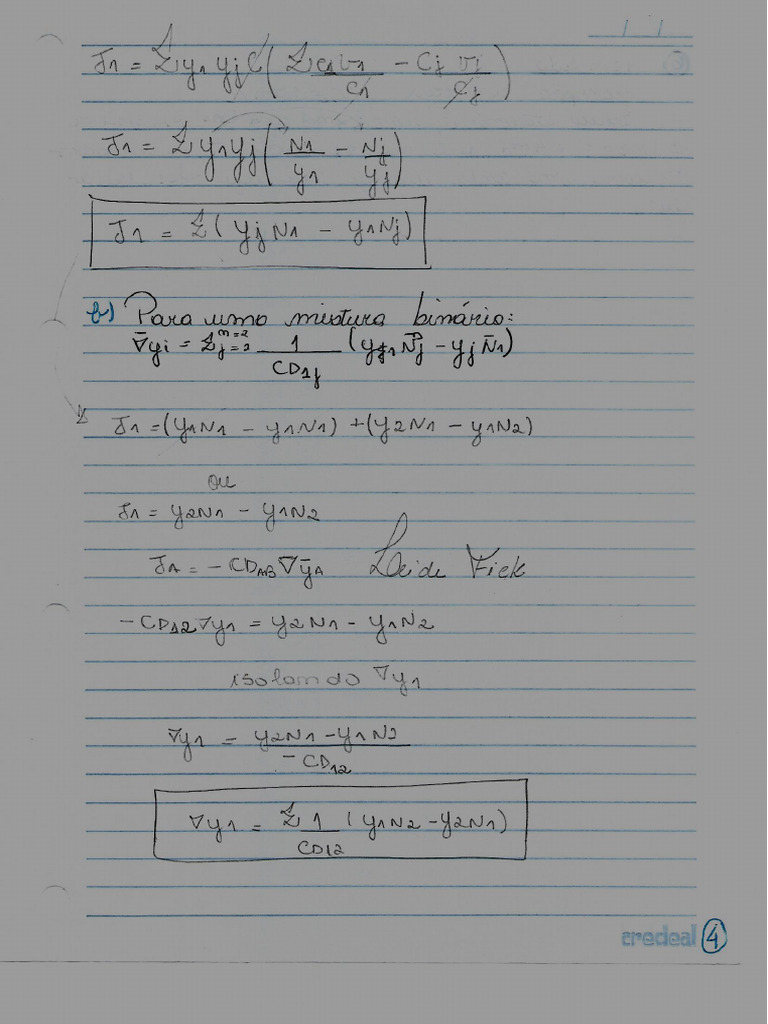 J1 = Σ y1 yj C ( Σ C1 v1 / C1 − Cj vj / Cj )
J1 = Σ y1 yj ( N1 / y1 − Nj / yj )
J1 = Σ ( yj N1 − y1 Nj )
b) Para uma mistura binário:
∇yi = Σ n=2 j=1 1 / CD1j ( y1 Nj − yj N1 )
J1 = (y1N1 − y1N1) + (y2N1 − y1N2)
ou
J1 = y2N1 − y1N2
JA = − CDAB ∇yA Lei de Fick
− CD12 ∇y1 = y2N1 − y1N2
isolando ∇y1
∇y1 = y2N1 − y1N2 / − CD12
∇y1 = Σ 1 / CD12 ( y1N2 − y2N1 )
credeal 4